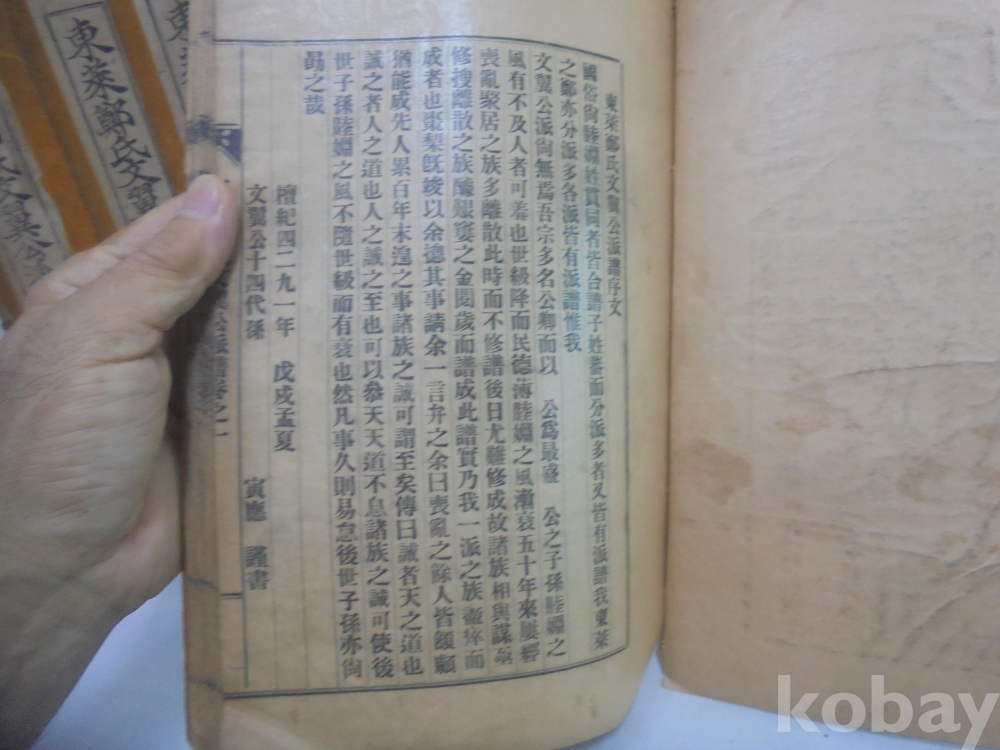 東萊鄭氏文翼公派譜序文
國俗尙睦婣姓貫同者皆合譜子姓蕃而分派多者又皆有派譜我東萊
之鄭亦分派多各派皆有派譜惟我
文翼公派尙無焉吾宗多名公卿而以 公爲最盛 公之子孫睦婣之
風有不及人者可羞也世級降而民德薄睦婣之風漸衰五十年來屢經
喪亂聚居之族多離散此時而不修譜後日尤難修成故諸族相與謀亟
修搜離散之族醵艱窶之金閱歲而譜成此譜實乃我一派之族 瘁而
成者也棗梨旣竣以余摠其事請余一言弁之余曰喪亂之餘人皆頷顧
猶能成先人累百年未遑之事諸族之誠可謂至矣傳曰誠者天之道也
誠之者人之道也人之誠之至也可以叅天天道不息諸族之誠可使後
世子孫睦婣之風不隨世級而有衰也然凡事久則易怠後世子孫亦尙
勗之哉
檀紀四二九一年 戊戌孟夏
文翼公十四代孫 寅應 謹書
公派譜卷之一
東萊鄭氏文翼
氏文翼公派
東萊
kobay